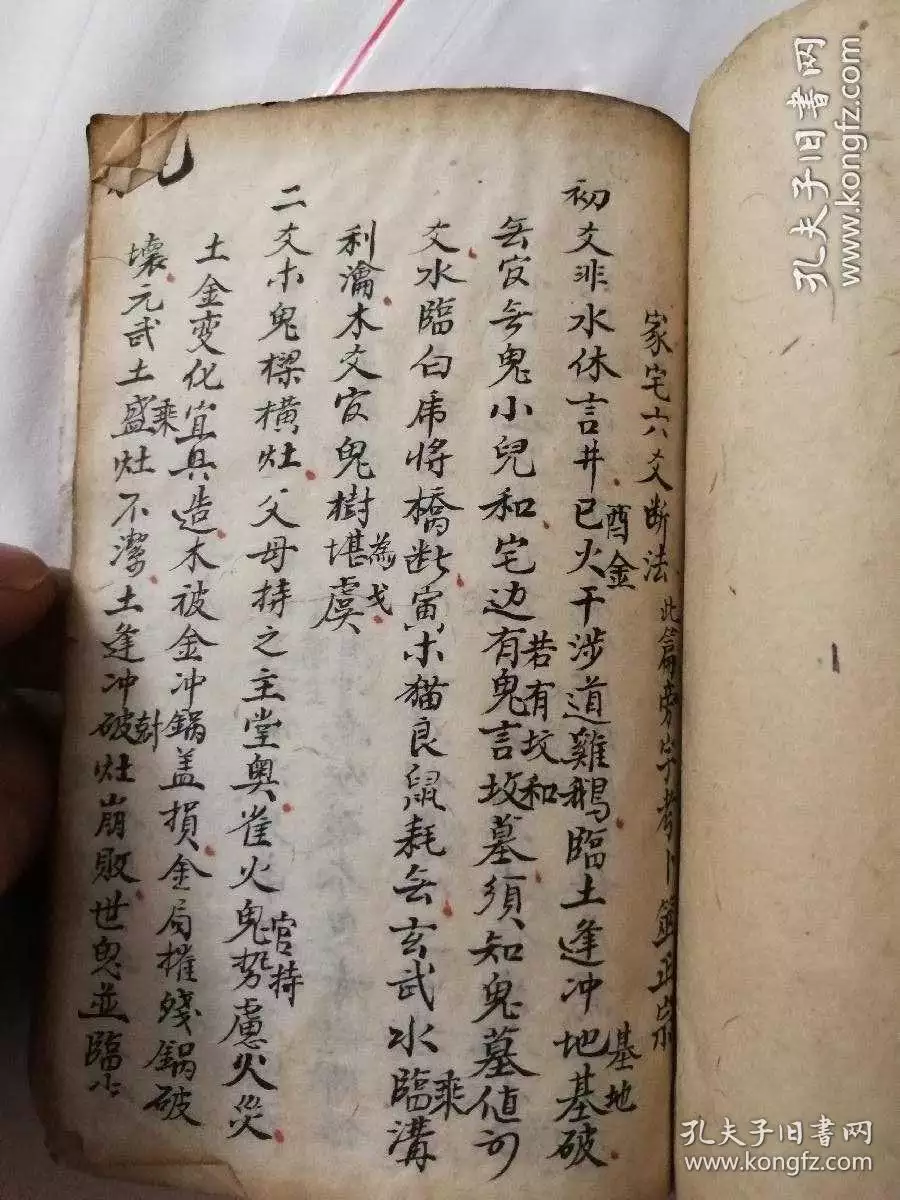 家宅六爻断法 此篇旁字考卜筮正宗
初爻非水休言井巳火干涉道雞鵝臨土逢冲地基破
酉金
基地
无官无鬼小兒和宅边有鬼言坟墓須知鬼墓值可
若有坟和
爻水臨白虎将橋断寅木猫良鼠耗无玄武水臨溝
乘
利瀹木爻官鬼樹堪虞
為戈
二爻木鬼樑横灶父母持之主堂奥雀火鬼势慮火災
官持
土金变化宜具造木被金冲鍋盖損金局摧殘鍋破
壞元武土盛灶不潔土逢冲破灶崩敗世鬼並臨
乘
尅
孔夫子旧书网
www.kongfz.com
孔夫子旧书网
www.kongfz.com